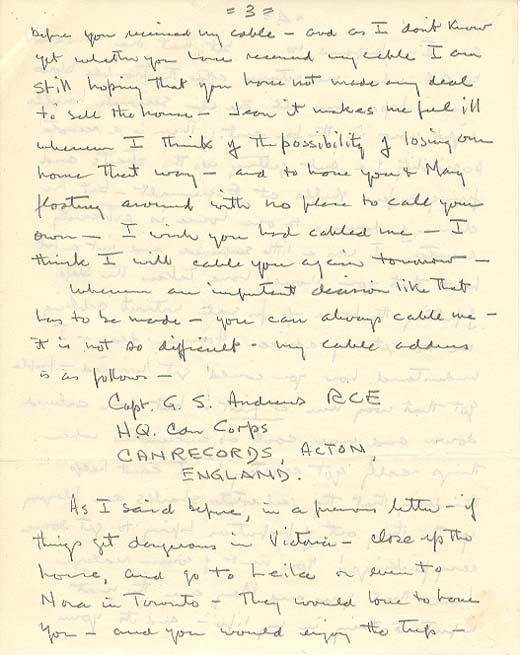 = 3 =
before you received my cable - and as I don't know
yet whether you have received my cable I am
still hoping that you have not made any deal
to sell the house - Jean it makes me feel ill
whenever I think of the possibility of losing our
home that way - and to have you & Mary
floating around with no place to call your
own - I wish you had cabled me - I
think I will cable you again tomorrow -
Whenever an important decision like that
has to be made - you can always cable me -
it is not so difficult - my cable address
is as follows -
Capt. G. S. Andrews RCE
H.Q. Can Corps
CANRECORDS, ACTON,
ENGLAND.
As I said before, in a previous letter - if
things get dangerous in Victoria - close up the
house, and go to Leila or even to
Nora in Toronto - They would love to have
you - and you would enjoy the trip -